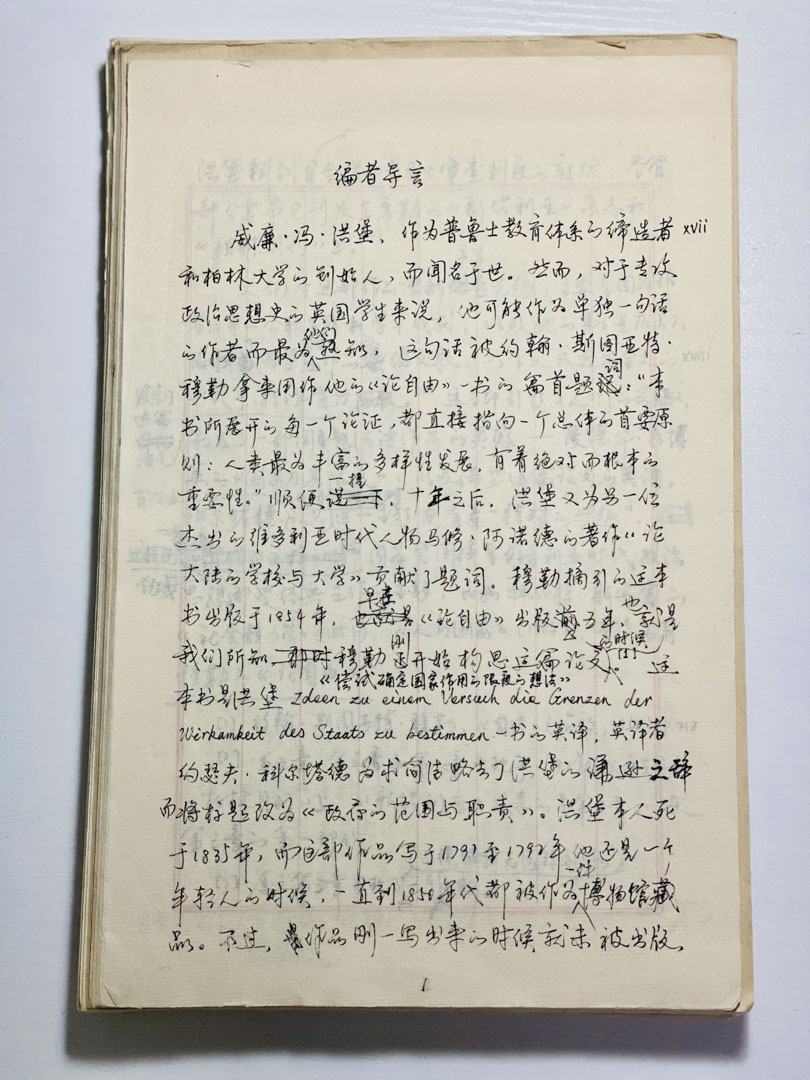 编者导言
威廉·冯·洪堡，作为普鲁士教育体系的缔造者 xvii
和柏林大学的创始人，而闻名于世。然而，对于专攻
政治思想史的英国学生来说，他可能作为单独一句话
的作者而最为他们熟知，这句话被约翰·斯图亚特·
穆勒拿来用作他的《论自由》一书的篇首题词："本
书所展开的每一个论证，都直接指向一个总体的首要原
则：人类最为丰富的多样性发展，有着绝对而根本的
重要性。"顺便一提，十年之后，洪堡又为另一位
杰出的维多利亚时代人物马修·阿诺德的著作《论
大陆的学校与大学》贡献了题词。穆勒摘引的这本
书出版于1854年，早在《论自由》出版前五年，也就是
我们所知穆勒刚开始构思这篇论文的时候[1]。这
本书是洪堡 Ideen zu einem Versuch die Grenzen der
《尝试确定国家作用的限度的想法》
Wirkamkeit des Staats zu bestimmen 一书的英译，英译者
约瑟夫·科尔塔德为求简洁略去了洪堡的谦逊之辞
而将标题改为《政府的范围与职责》。洪堡本人死
于1835年，而这部作品写于1791至1792年他还是一个
年轻人的时候，一直到1850年代都被作为一件博物馆藏
品。不过，作品刚一写出来的时候就未被出版，
1